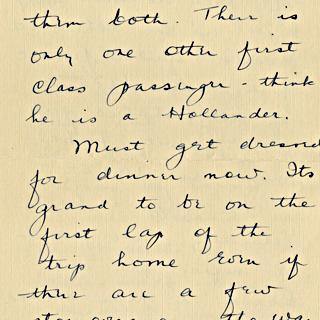 them both. There is
only one other first
class passenger - think
he is a Hollander.
Must get dressed
for dinner now. Its
grand to be on the
first lap of the
trip home even if
there are a few
stop overs on the way